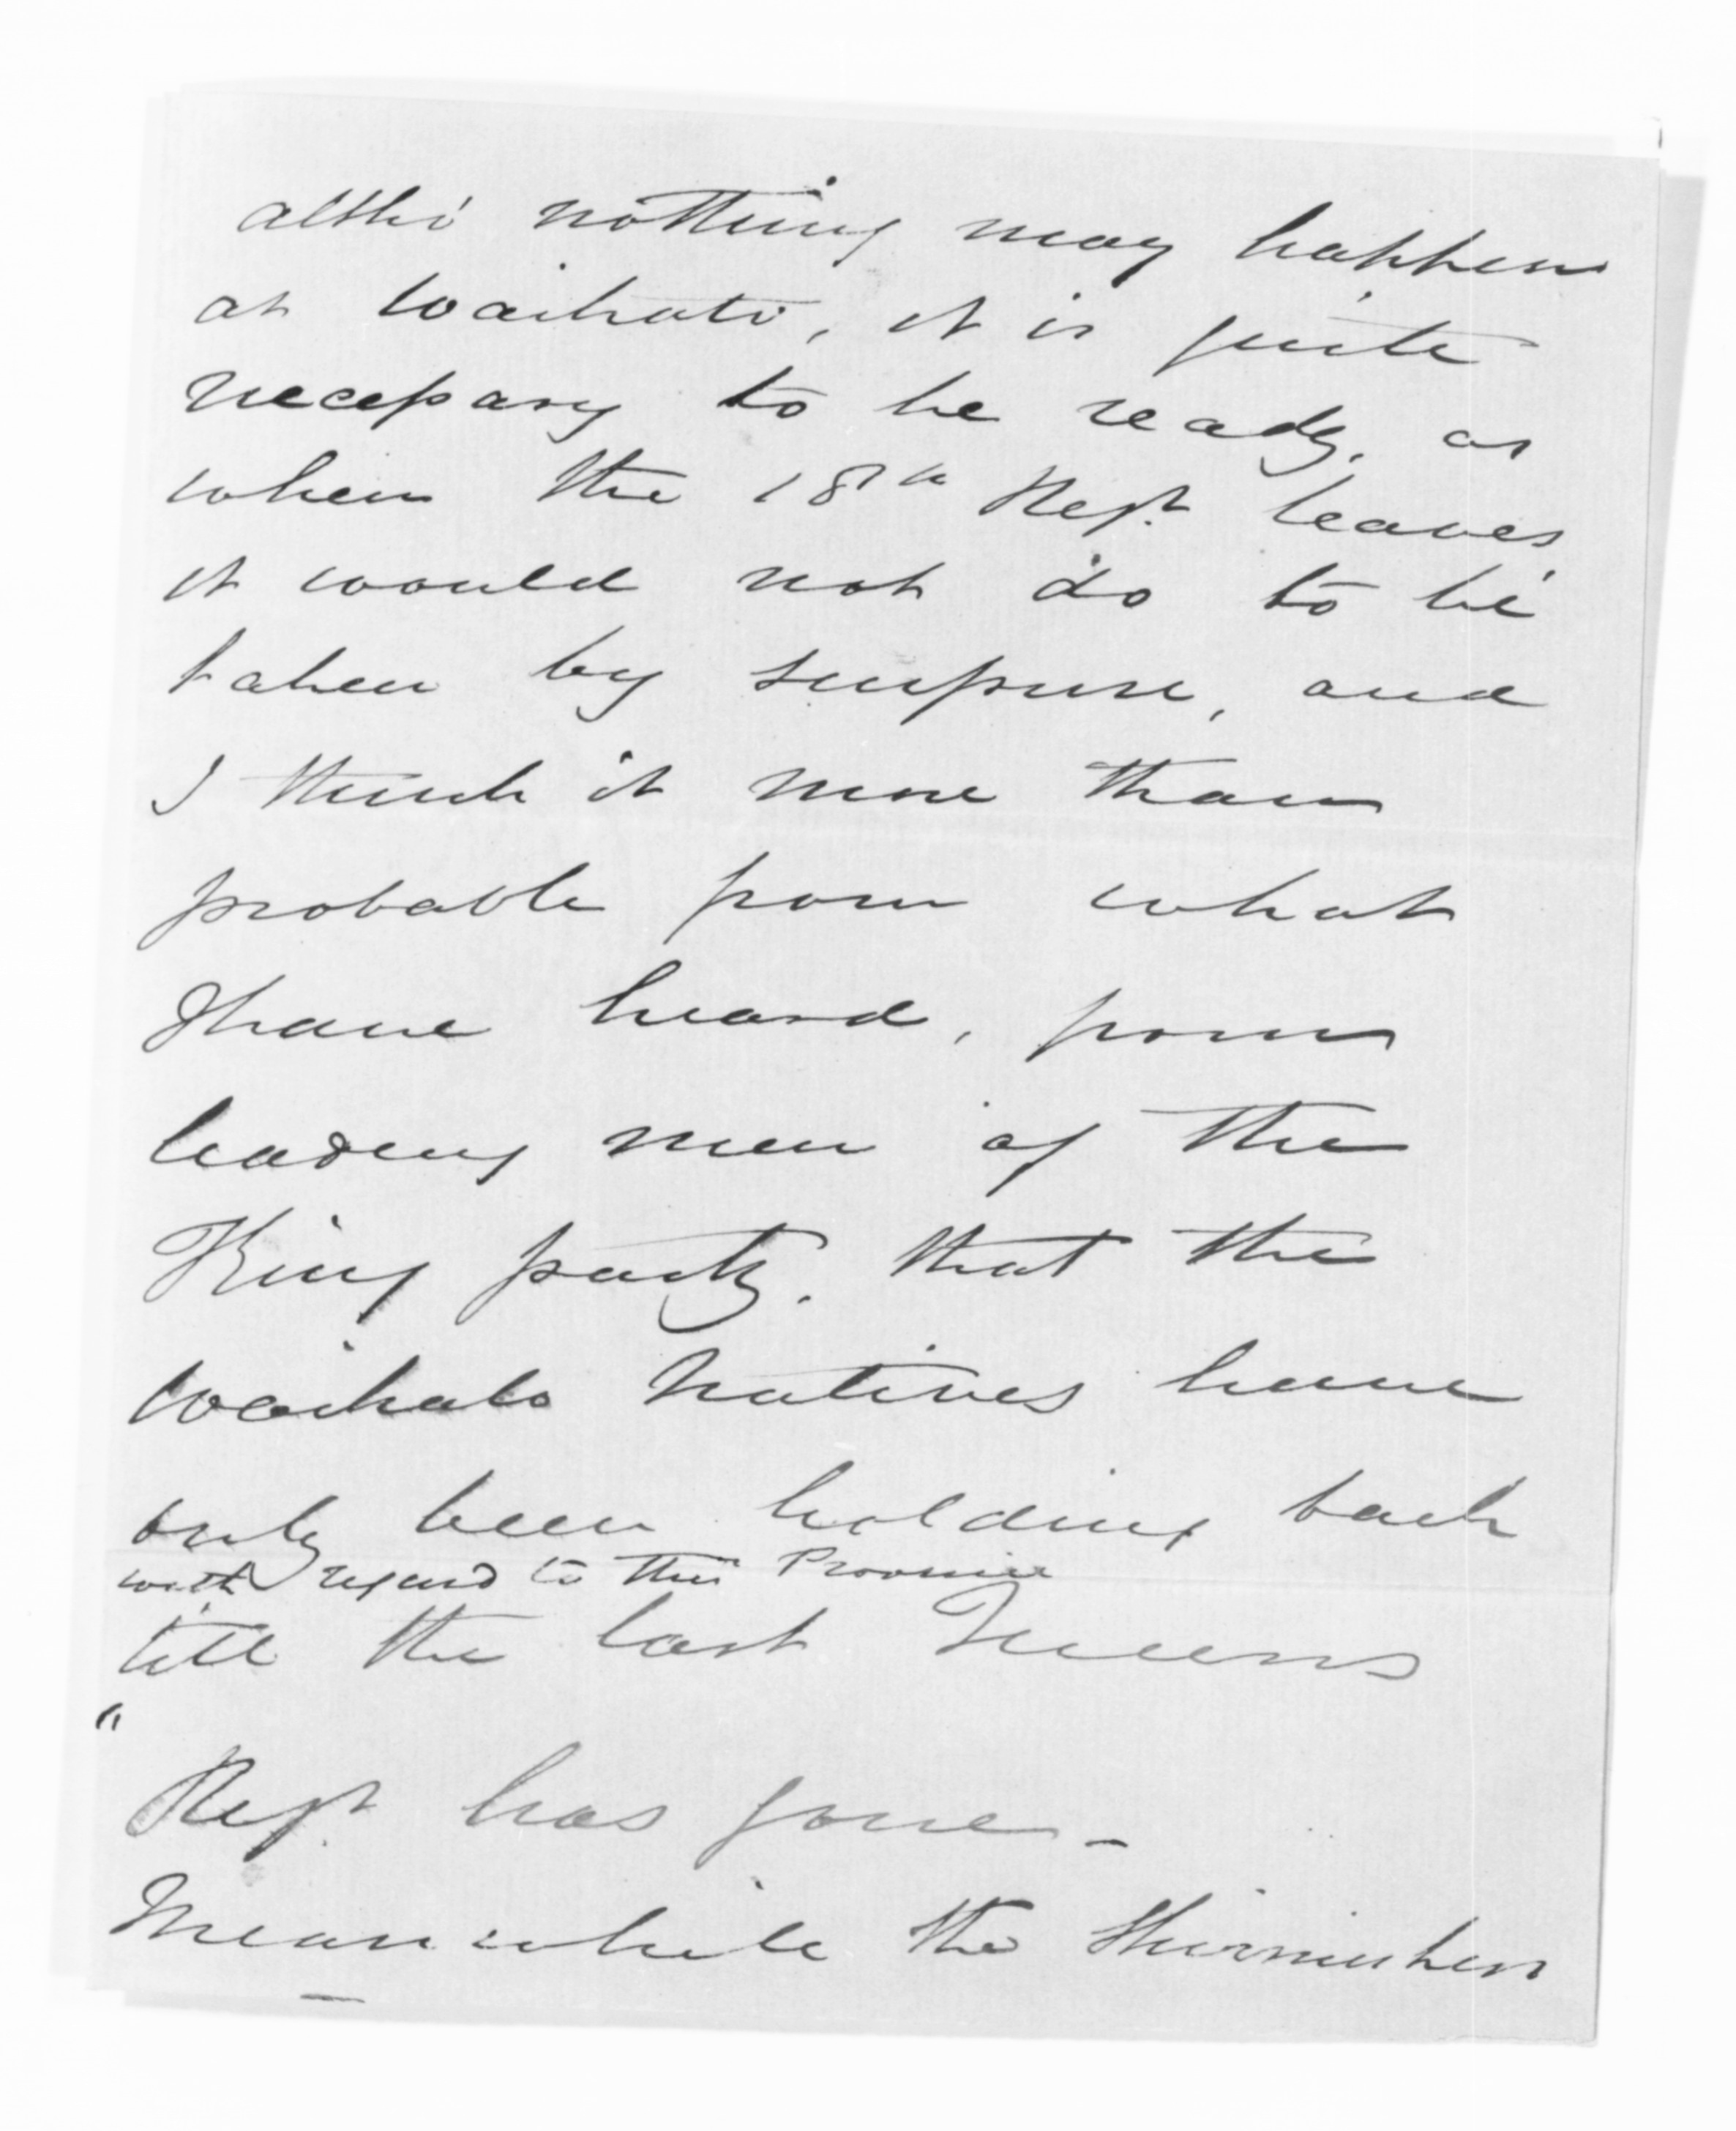 altho' nothing may happen
at Waikato, it is quite
necessary to be ready, as
when the 18th Regt. leaves
it would not do to be
taken by surprise, and
I think it more than
probable from what
I have heard, from
leading men of the
King party, that the
Waikato Natives have
only been holding back
with regard to this Province
till the last Queens
"
Regt. has gone –
Meanwhile the